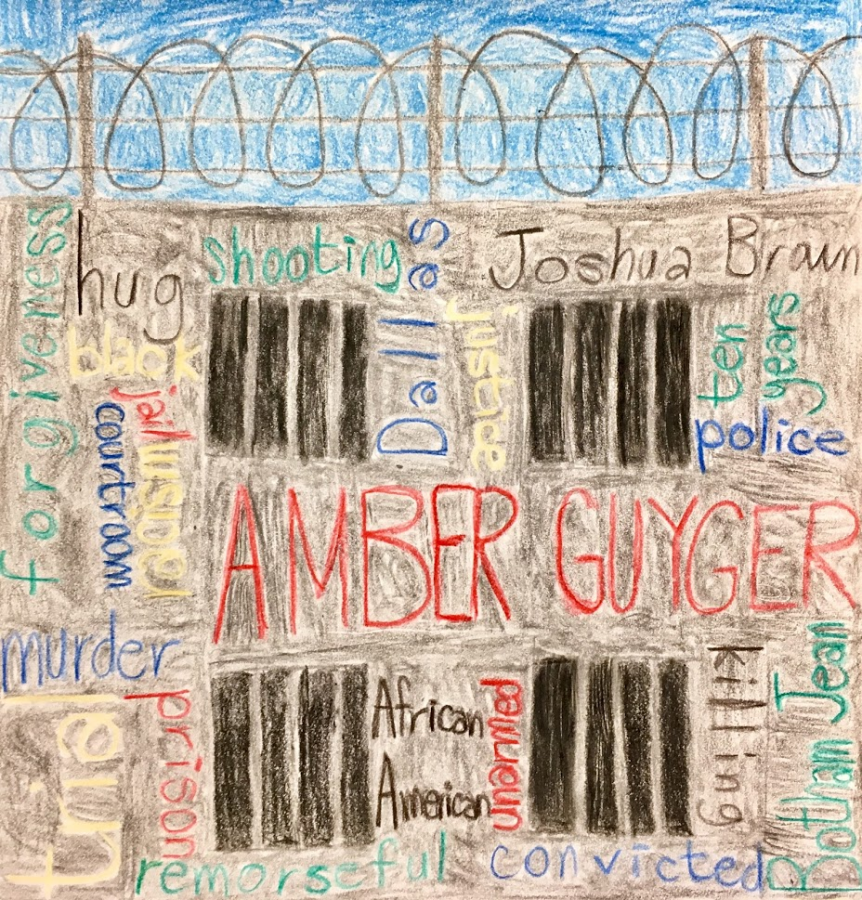 forgiveness
hug
shooting
Dallas
Joshua Braun
black
justice
ten
years
jail
courtroom
police
AMBER GUYGER
murder
trial
prison
African
American
unarmed
killing
Botham Jean
remorseful
convicted